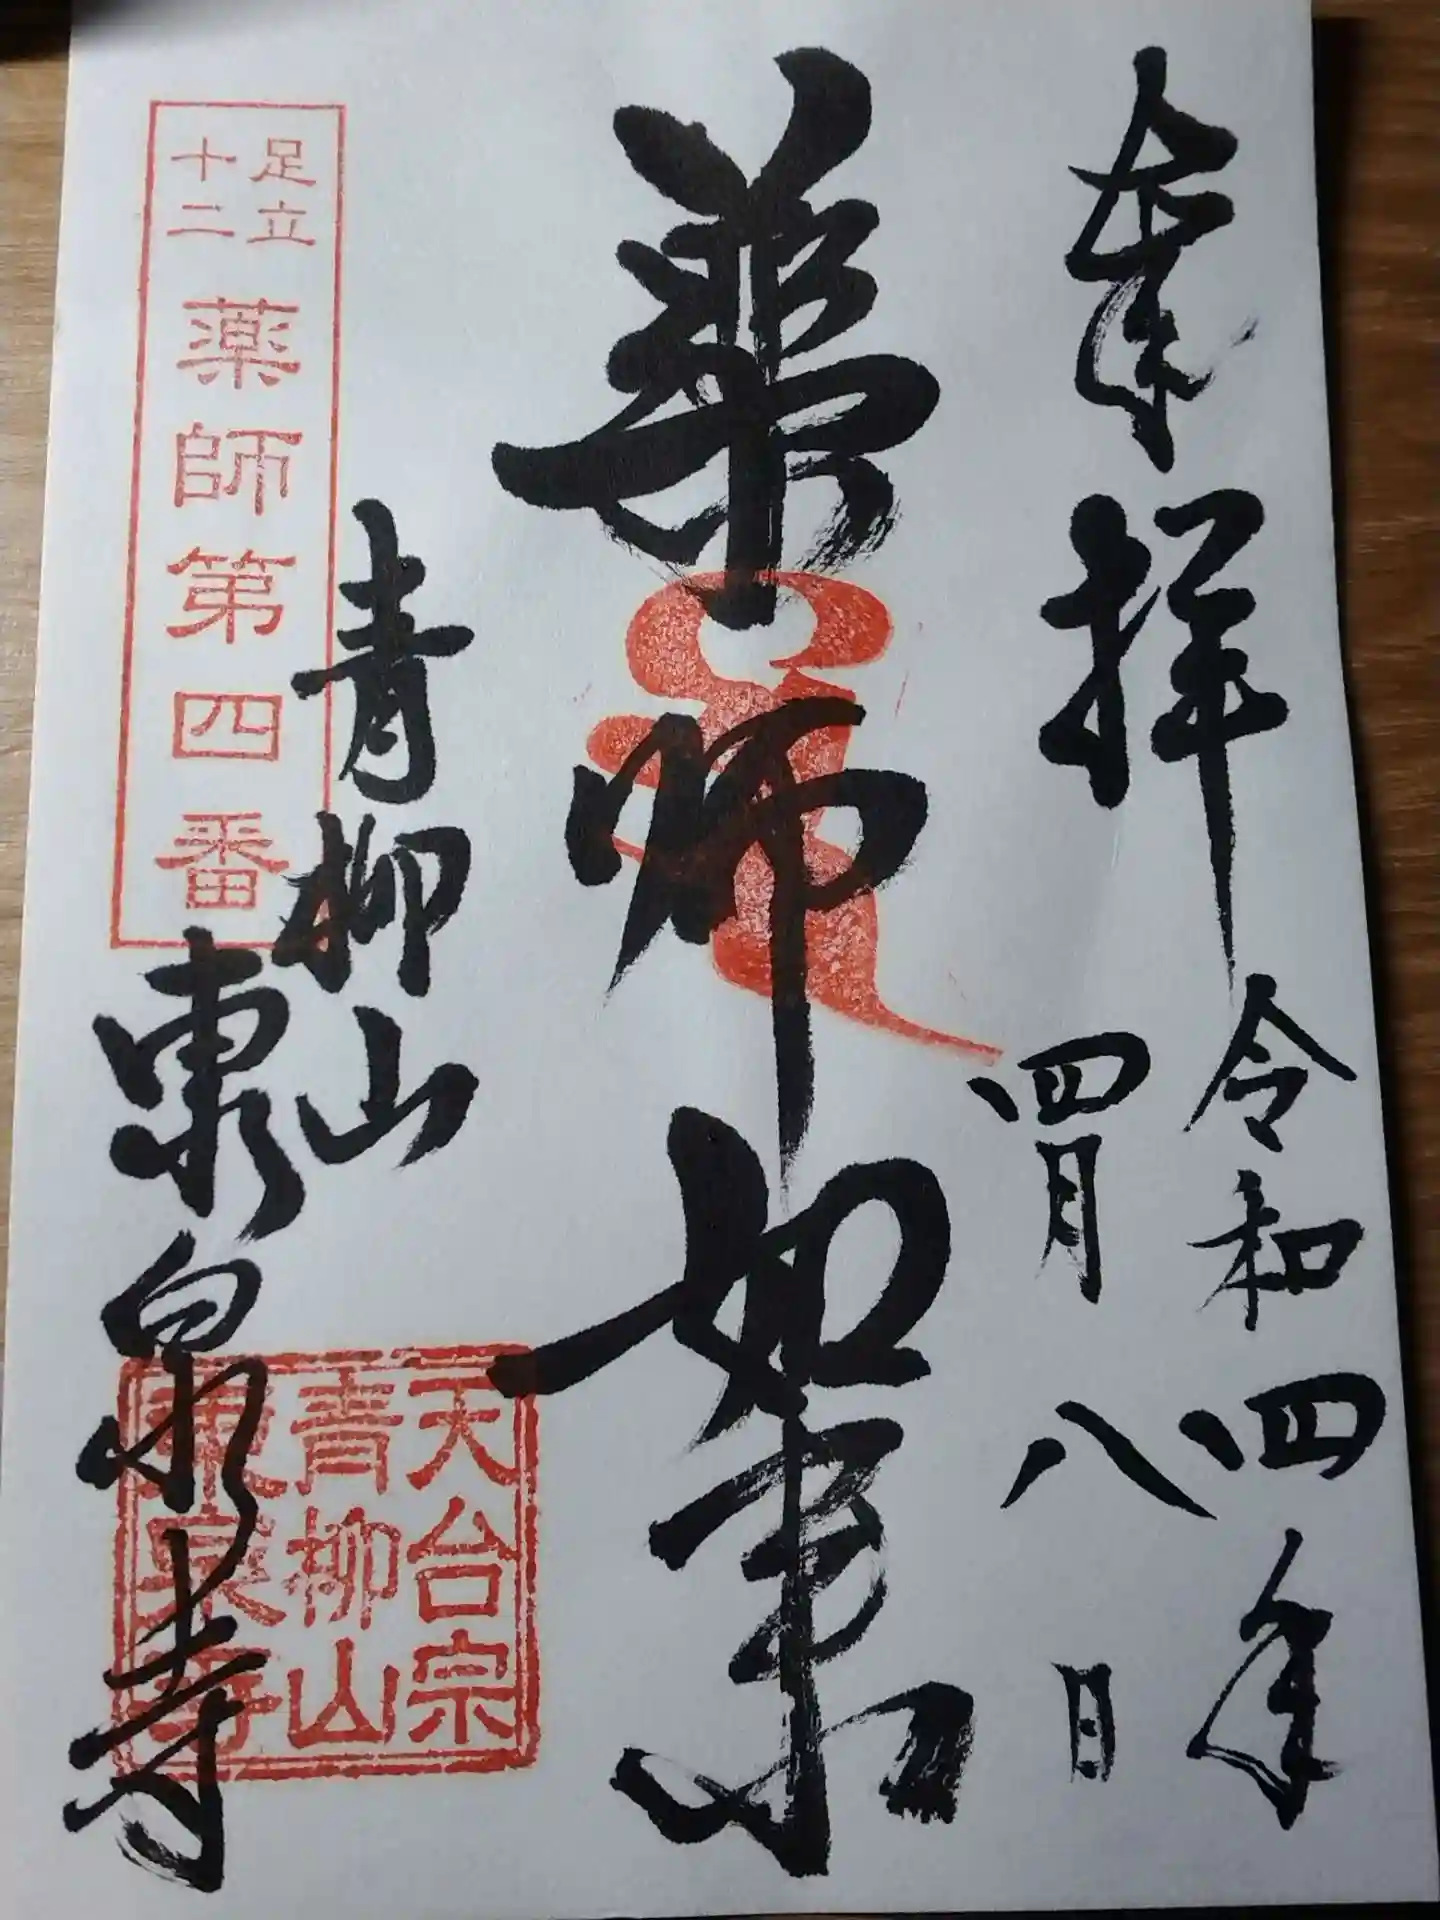 奉拝
令和四年
四月八日
薬師如来
足立
十二
薬師第四番
青柳山
東泉寺
天台宗
青柳山
東泉寺